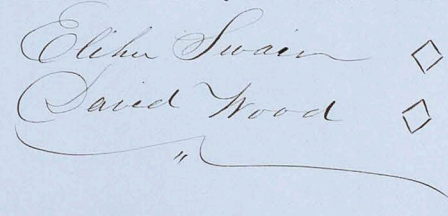 Elihu Swain ◇
David Wood ◇
"